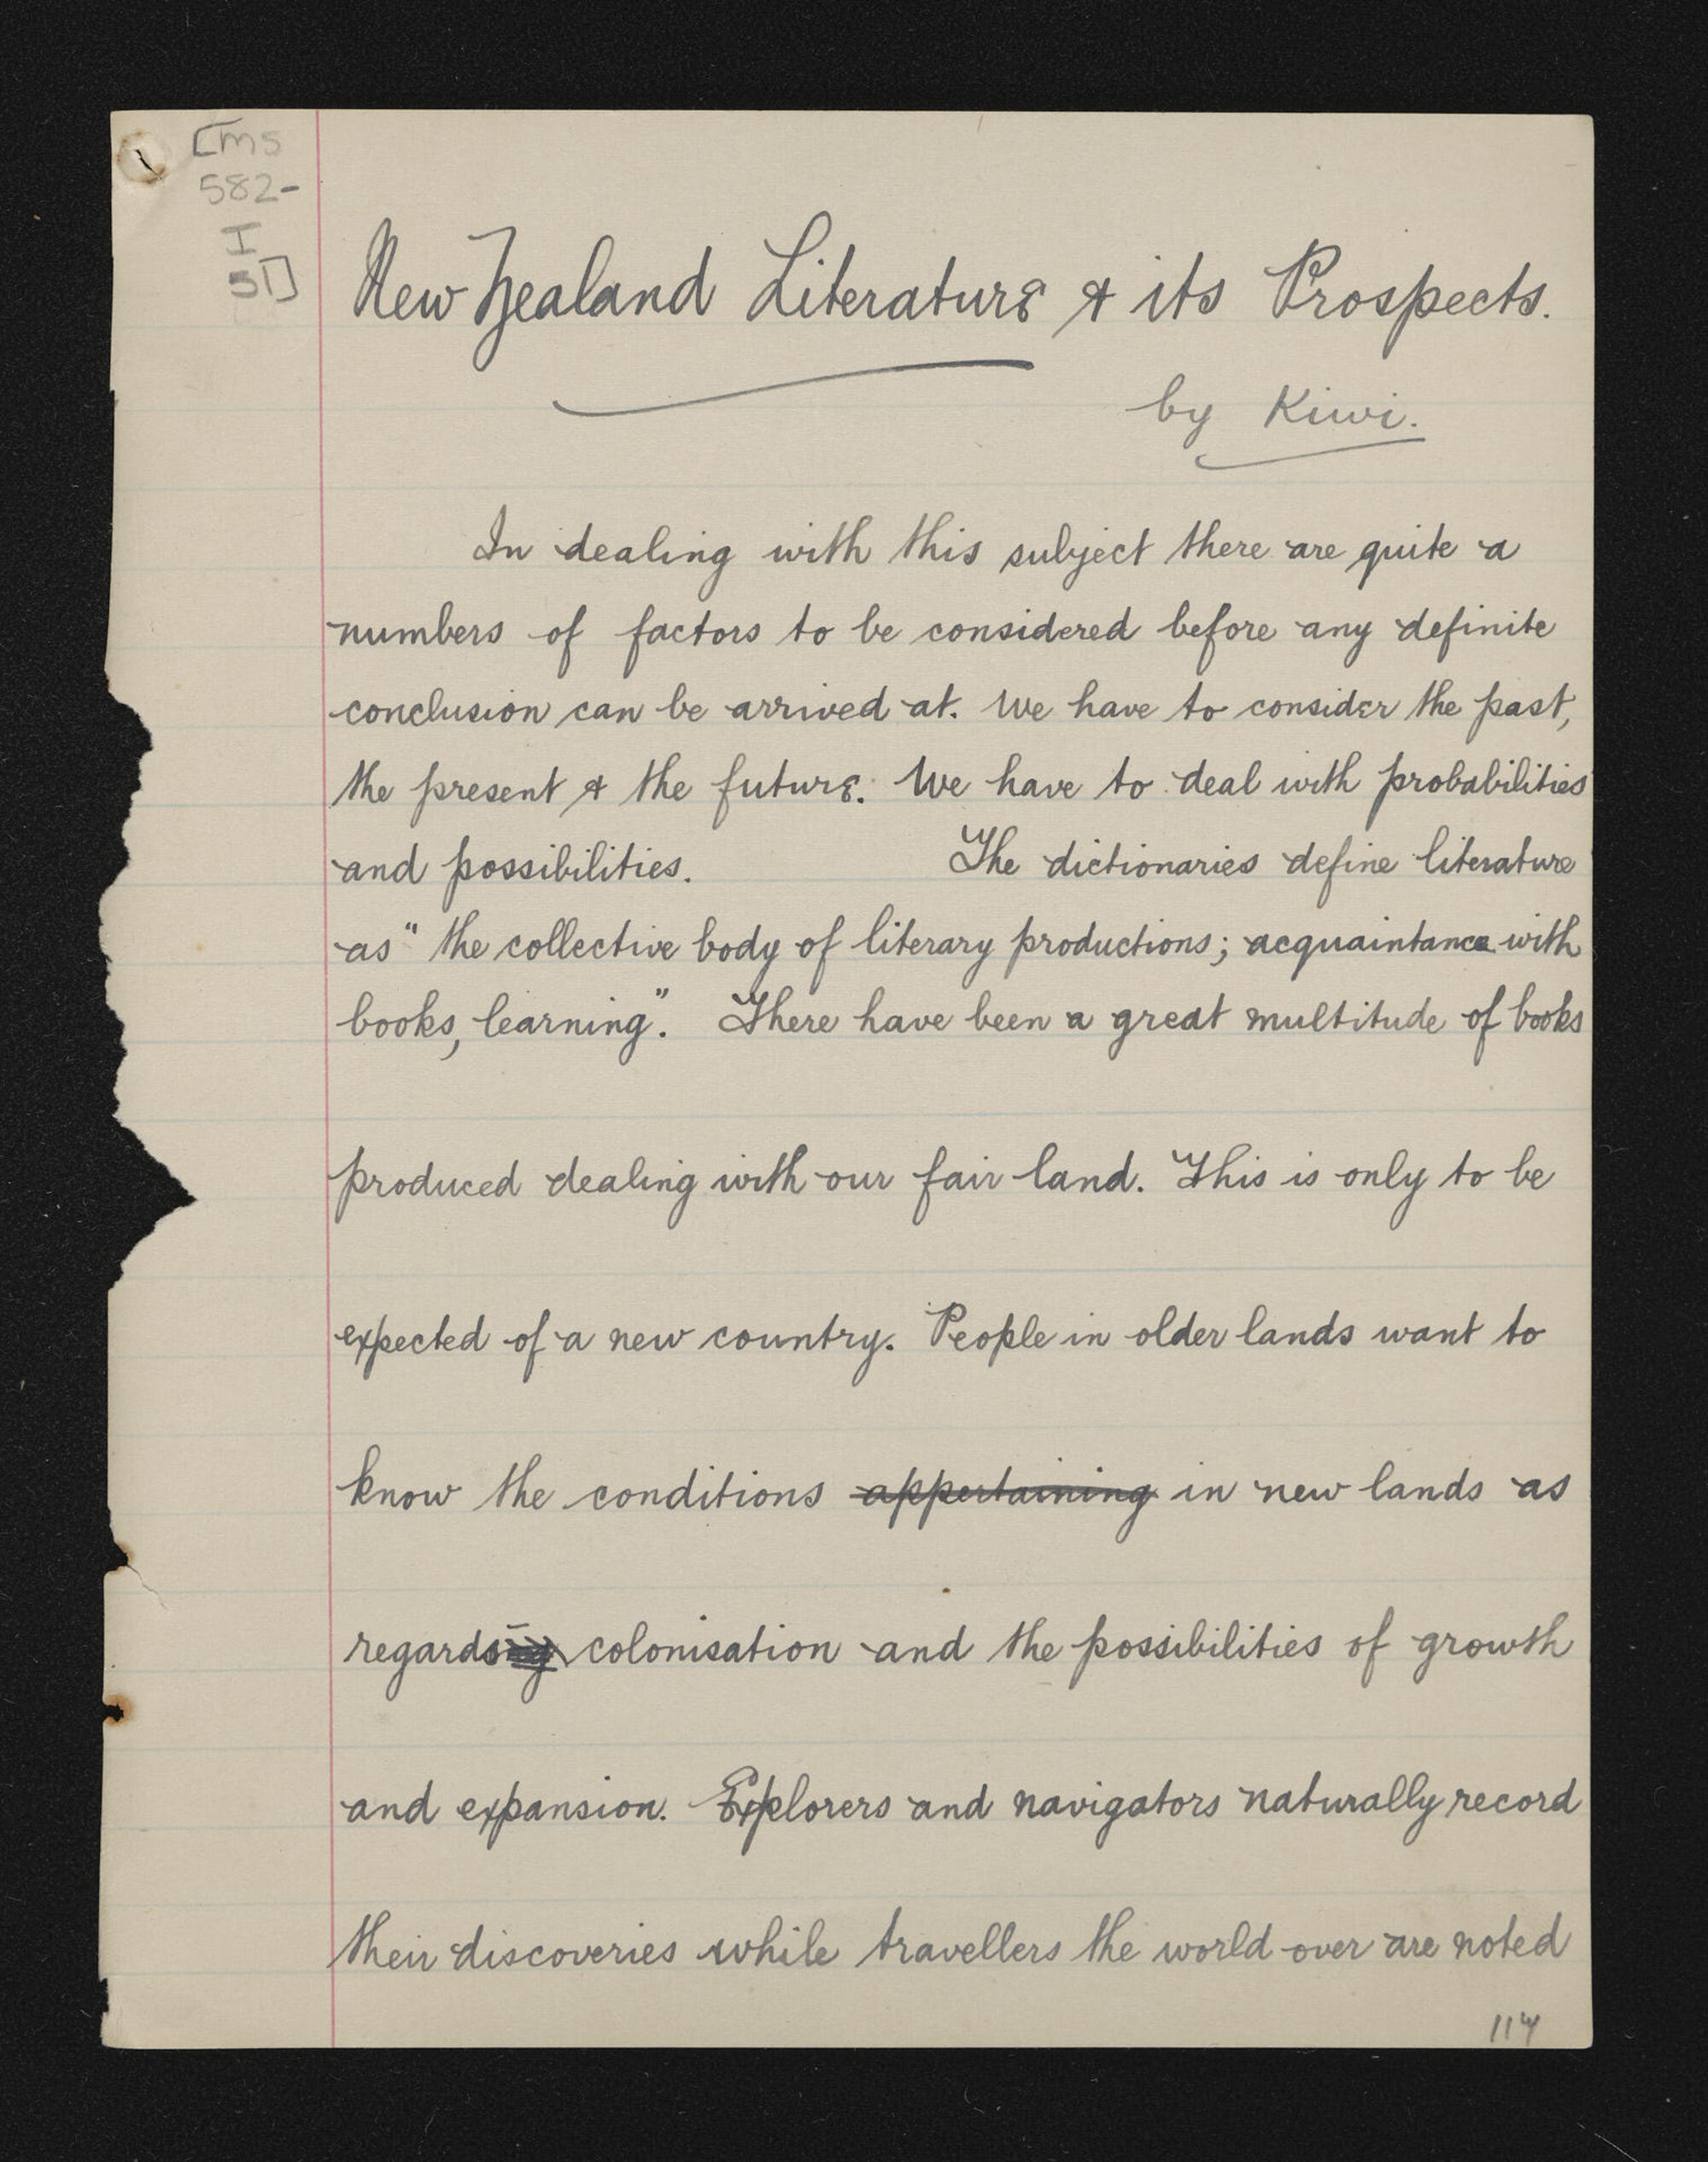 [MS
582-
I
51]
New Zealand Literature & its Prospects.
by Kiwi.
In dealing with this subject there are quite a
numbers of factors to be considered before any definite
conclusion can be arrived at. We have to consider the past,
the present & the future. We have to deal with probabilities
and possibilities. The dictionaries define literature
as "the collective body of literary productions; acquaintance with
books, learning". There have been a great multitude of books
produced dealing with our fair land. This is only to be
expected of a new country. People in older lands want to
know the conditions appertaining in new lands as
regards colonisation and the possibilities of growth
and expansion. Explorers and navigators naturally record
their discoveries while travellers the world over are noted
114